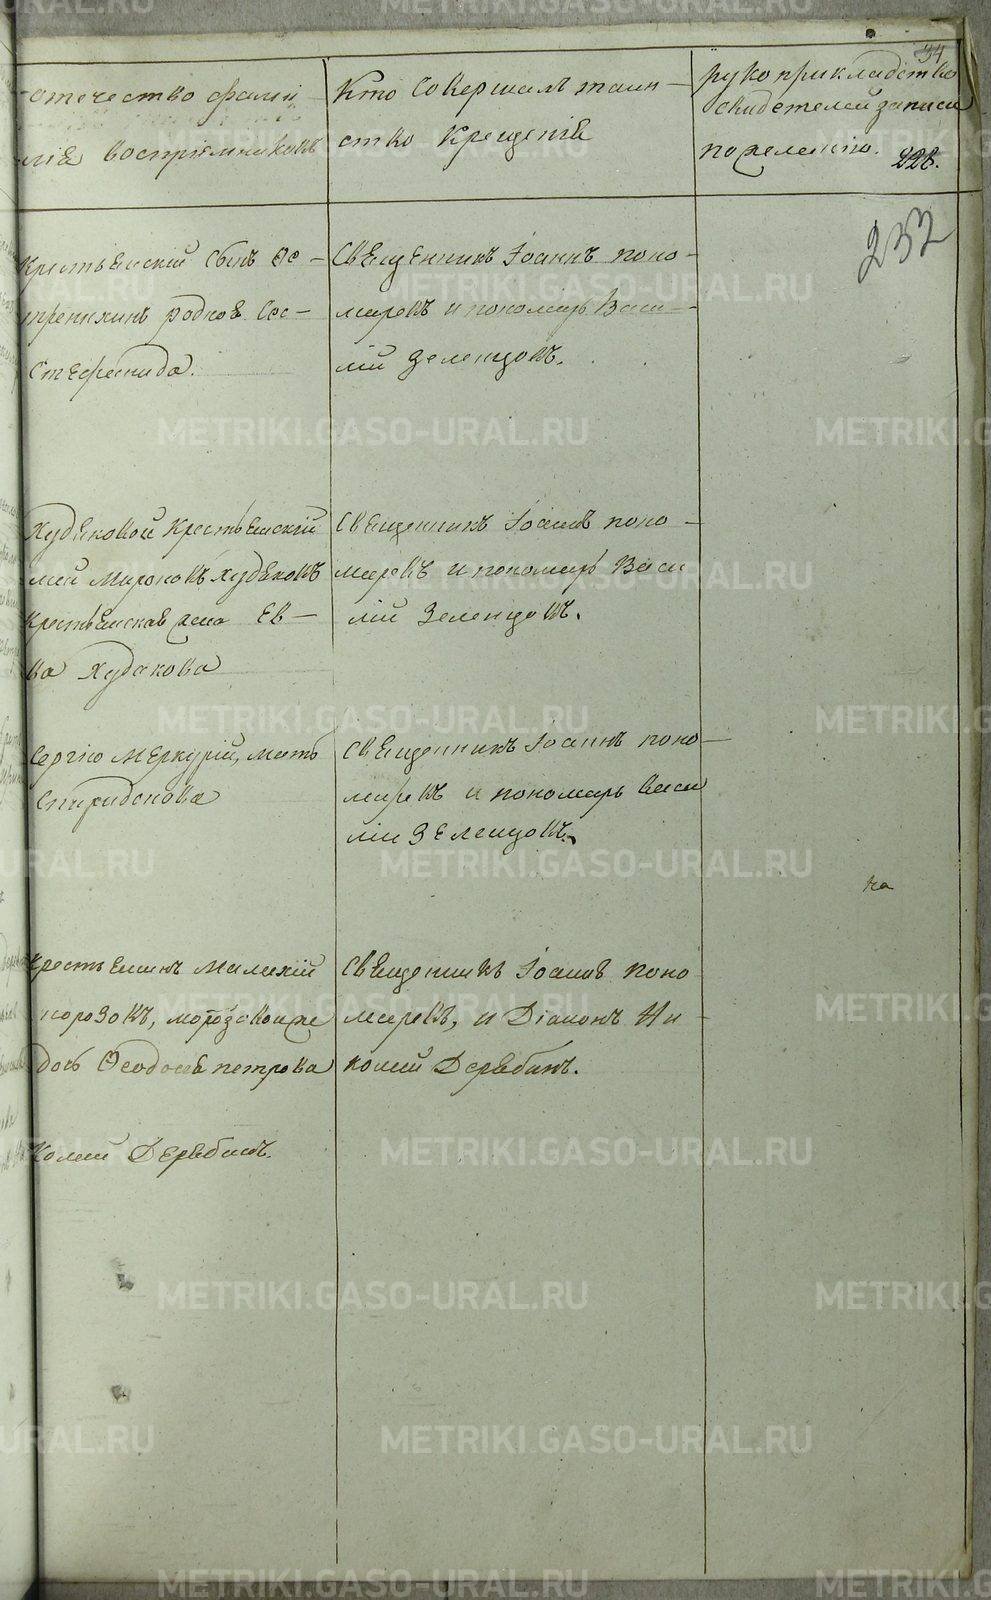 34
отечество фами
лiѣ воспрiемниковъ
Кто совершалъ таин
ство Крещенiѣ
рукоприкладство
свидетелей записи
по желанiю. 228.
232
Крестьянскiй сынъ
родноѣ
Священникъ Iоаннъ поно
маревъ и пономарь Васи
лiй Зеленцовъ.
Худяковой Крестьянскiй
Мироновъ Худяковъ
Крестьянская жена Ев
ва Худякова
Священникъ Iоаннъ поно
маревъ и пономарь Васи
лiй Зеленцовъ.
Сергiю Меркурiй, мать
Спиридонова
Священникъ Iоаннъ поно
маревъ и пономарь Васи
лiй Зеленцовъ.
на
Крестьянинъ
морозовъ, морозова же
дочь Ѳеодосья петрова
Священникъ Iоаннъ поно
маревъ, и Дiаконъ Ни
колай Дерябинъ.
колай Дерябинъ.
METRIKI.GASO-URAL.RU